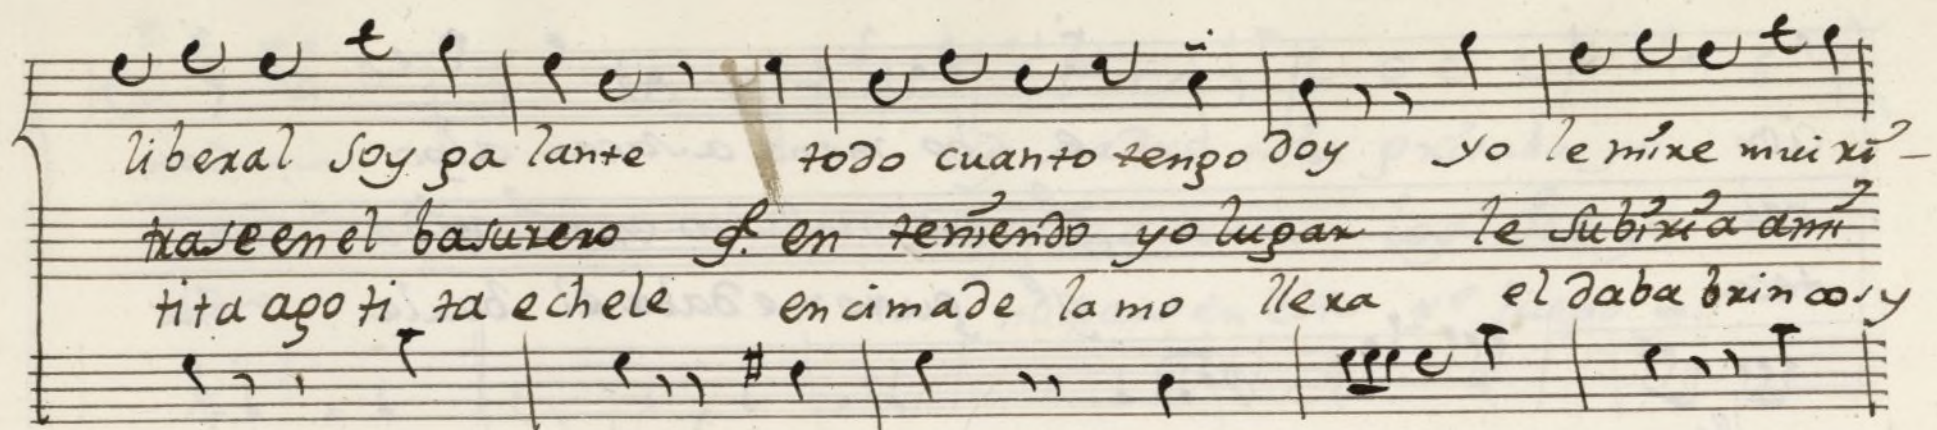 liberal soy ga lante todo cuanto tengo doy yo le mire mui ri-
trase en el basurero q.e en teniendo yo lugar le subiria a mi
tita a goti ta echele encima de la mo llera el daba brincos y